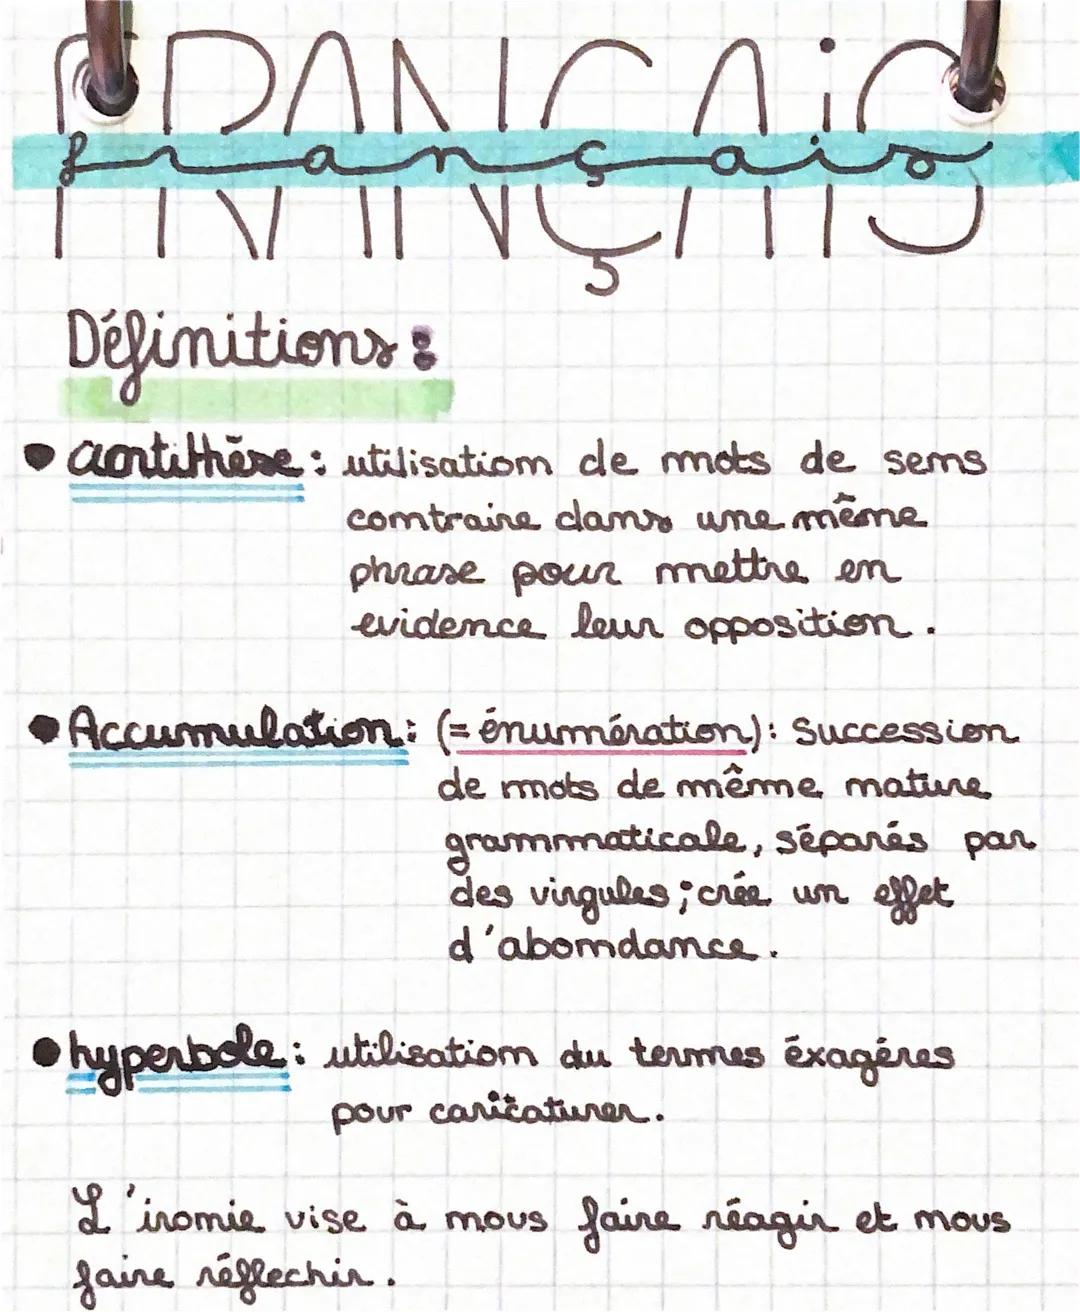 FRANÇAiS
français
Définitions :
• antithèse : utilisation de mots de sens
contraire dans une même
phrase pour mettre en
evidence leur opposition.
• Accumulation : (= énumération) : Succession
de mots de même nature
grammaticale, séparés par
des virgules ; crée un effet
d'abondance.
• hyperbole : utilisation du termes éxagéres
pour caricaturer.
L'ironie vise à nous faire réagir et nous
faire réflechir.